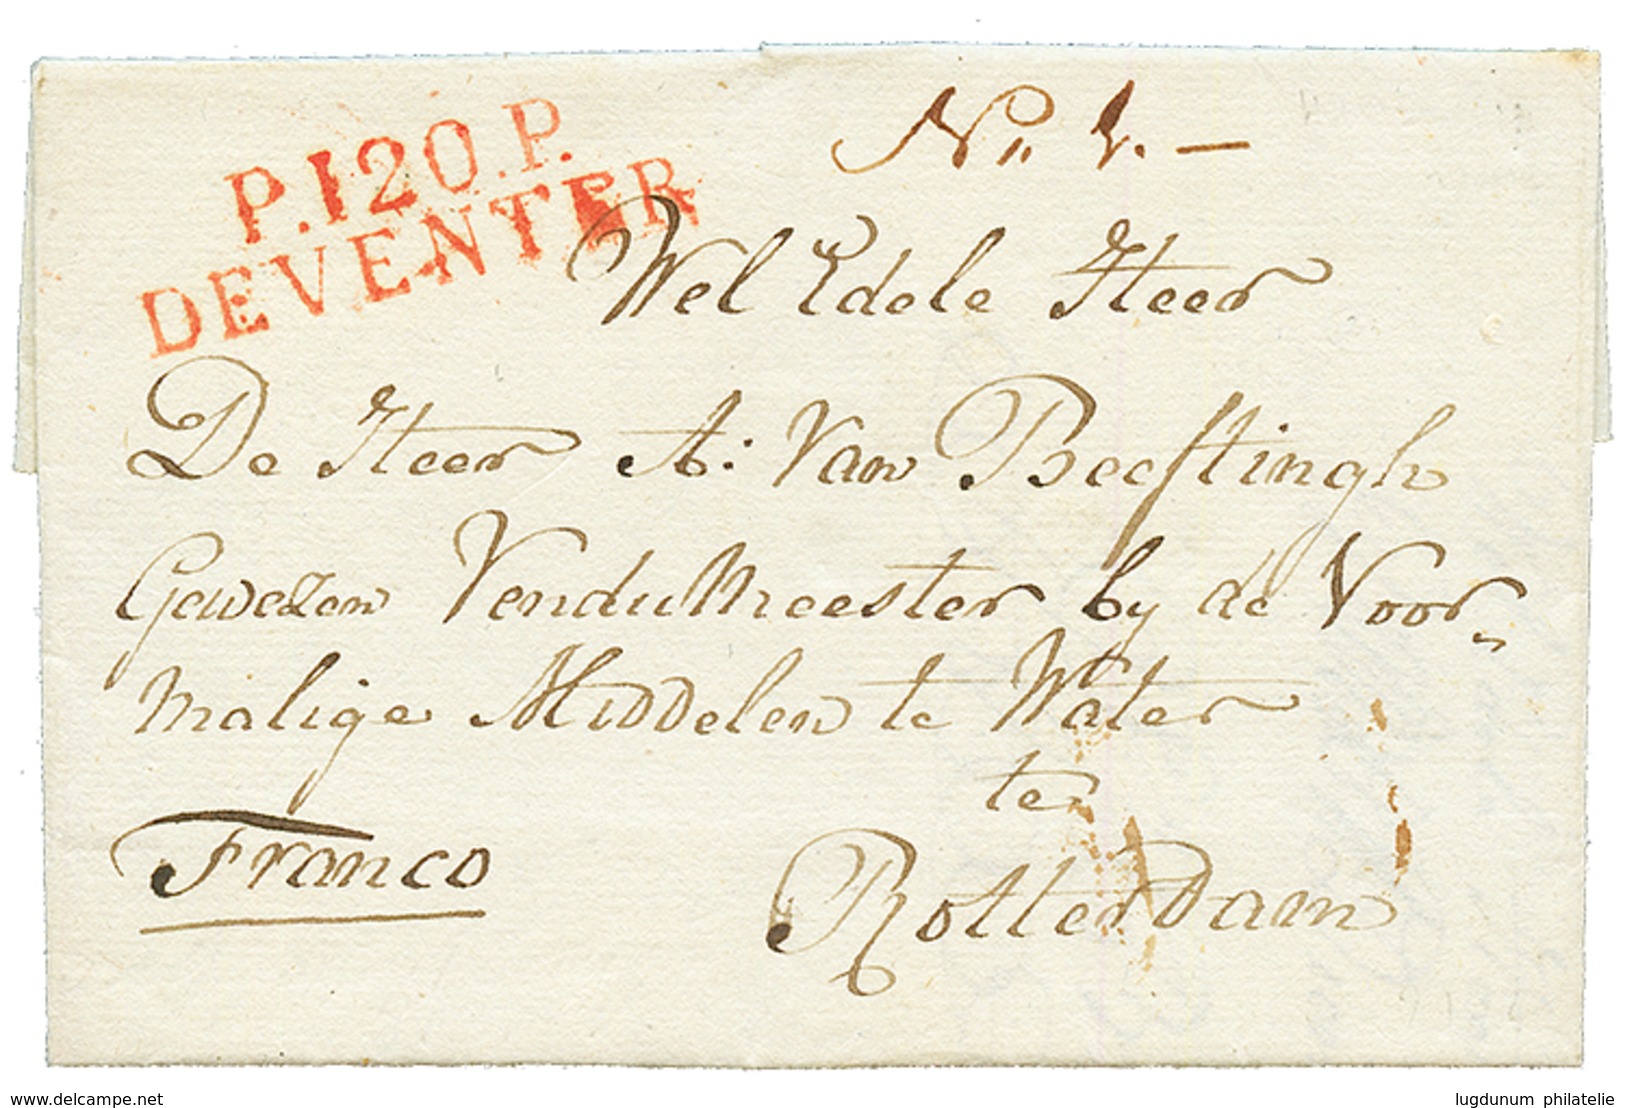 P.120.P.
DEVENTER
No. 1. —
Wel Edele Heer
De Heer A: Van Beeftingh
Gewezen VenduMeester by de Voor„
malige Middelen te Water
te
Rotterdam
Franco
www.delcampe.net
lugdunum philatelie